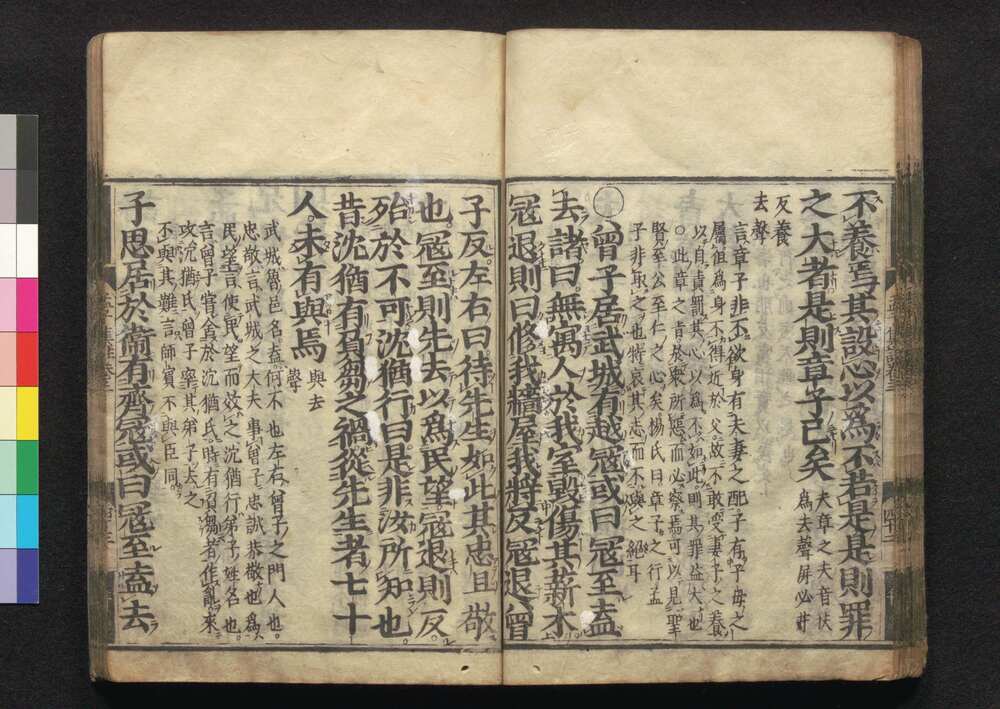 不養焉其設心以爲不若是是則罪
之大者是則章子已矣
夫章之夫音扶
爲去聲屏必井
反養
去聲
言章子非不欲身有夫妻之配子有子母之
屬但爲身不得近於父故不敢受妻子之養
以自責罰其心以爲不如此則其罪益大也
○此章之旨於衆所惡而必察焉可以見聖
賢至公至仁之心矣楊氏曰章子之行孟
子非取之也特哀其志而不與之絕耳
○曾子居武城有越寇或曰寇至盍
去諸曰無寓人於我室毀傷其薪木
寇退則曰修我牆屋我將反寇退曾
子反左右曰待先生如此其忠且敬
也寇至則先去以爲民望寇退則反
殆於不可沈猶行曰是非汝所知也
昔沈猶有負芻之禍從先生者七十
人未有與焉
與去
聲
武城魯邑名盍何不也左右曾子之門人也
忠敬言武城之大夫事曾子忠誠恭敬也爲
民望言使民望而效之沈猶行弟子姓名也
言曾子嘗舍於沈猶氏時有負芻者作亂來
攻沈猶氏曾子率其弟子去之
不與其難言師賓不與臣同
子思居於衛有齊寇或曰寇至盍去